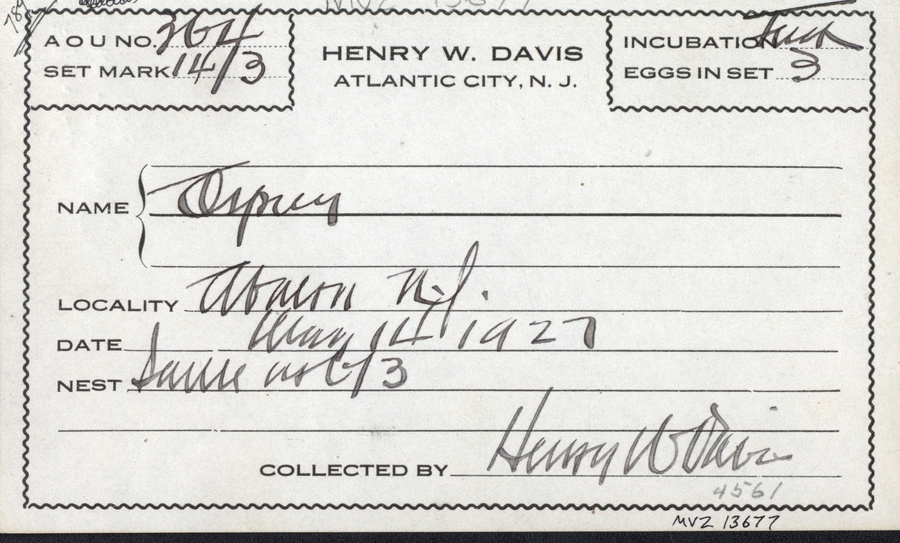 A O U NO. 364
SET MARK 14/3
HENRY W. DAVIS
ATLANTIC CITY, N. J.
INCUBATION Fresh
EGGS IN SET 3
NAME Osprey
LOCALITY Absecon N.J.
DATE May 14 1927
NEST Same as 6/3
COLLECTED BY Henry W Davis
4561
MVZ 13677